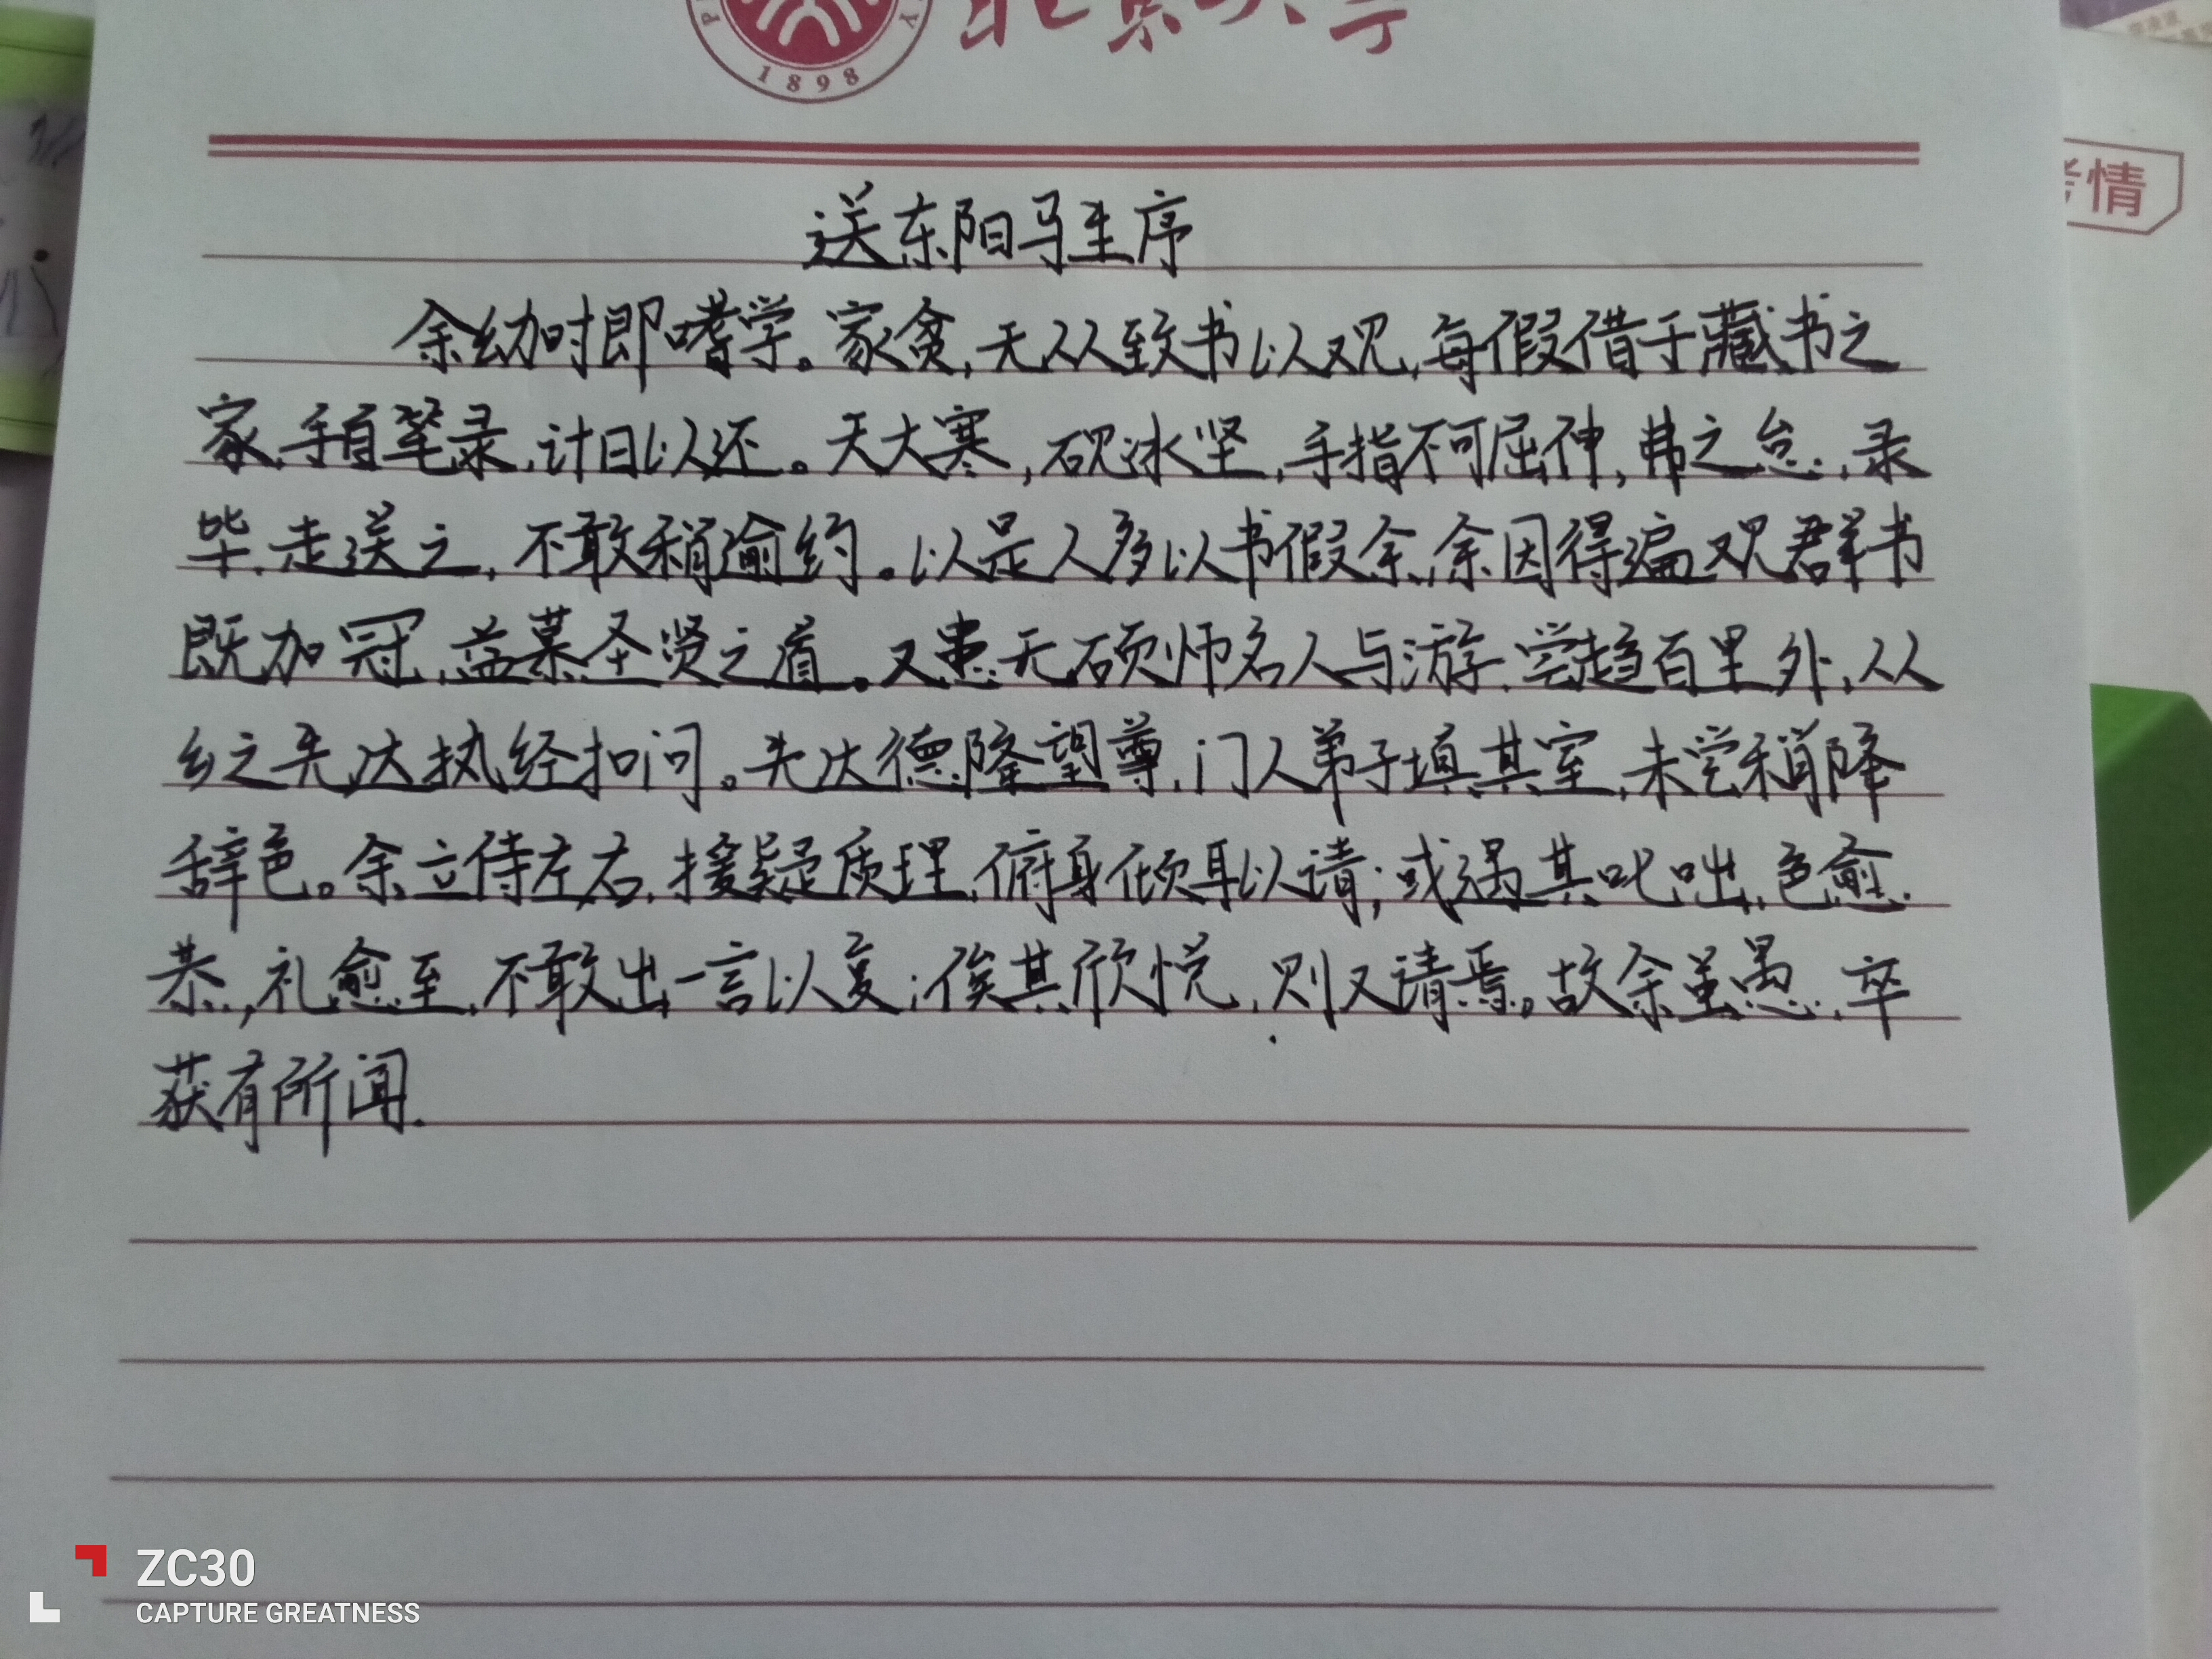 1898
北京大学
送东阳马生序
余幼时即嗜学。家贫,无从致书以观,每假借于藏书之
家,手自笔录,计日以还。天大寒,砚冰坚,手指不可屈伸,弗之怠,录
毕,走送之,不敢稍逾约。以是人多以书假余,余因得遍观群书
既加冠,益慕圣贤之道。又患无硕师名人与游,尝趋百里外,从
乡之先达执经扣问。先达德隆望尊,门人弟子填其室,未尝稍降
辞色。余立侍左右,援疑质理,俯身倾耳以请;或遇其叱咄,色愈
恭,礼愈至,不敢出一言以复;俟其欣悦,则又请焉。故余虽愚,卒
获有所闻.
情
ZC30
CAPTURE GREATNESS